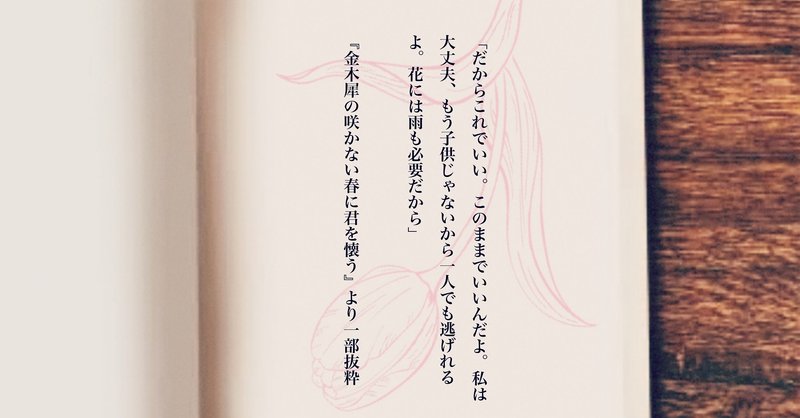 「だからこれでいい。このままでいいんだよ。私は
大丈夫、もう子供じゃないから一人でも逃げれる
よ。花には雨も必要だから」
『金木犀の咲かない春に君を懐う』より一部抜粋